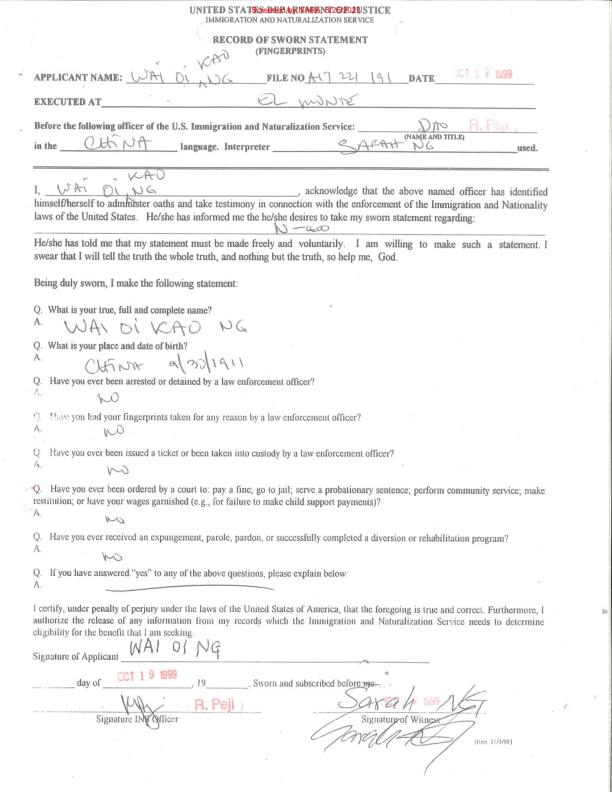 UNITED STATES DEPARTMENT OF JUSTICE
IMMIGRATION AND NATURALIZATION SERVICE
RECORD OF SWORN STATEMENT
(FINGERPRINTS)
KAO
APPLICANT NAME: WAI OI NG FILE NO A17 221 191 DATE OCT 19 1999
EXECUTED AT EL MONTE
Before the following officer of the U.S. Immigration and Naturalization Service: DAO R. Peji
(NAME AND TITLE)
in the CHINA language. Interpreter SARAH NG used.
KAO
I, WAI OI NG, acknowledge that the above named officer has identified
himself/herself to administer oaths and take testimony in connection with the enforcement of the Immigration and Nationality
laws of the United States. He/she has informed me the he/she desires to take my sworn statement regarding:
N-400
He/she has told me that my statement must be made freely and voluntarily. I am willing to make such a statement. I
swear that I will tell the truth the whole truth, and nothing but the truth, so help me, God.
Being duly sworn, I make the following statement:
Q. What is your true, full and complete name?
A. WAI OI KAO NG
Q. What is your place and date of birth?
A. CHINA 9/30/1911
Q. Have you ever been arrested or detained by a law enforcement officer?
A. NO
Q. Have you had your fingerprints taken for any reason by a law enforcement officer?
A. NO
Q. Have you ever been issued a ticket or been taken into custody by a law enforcement officer?
A. NO
Q. Have you ever been ordered by a court to: pay a fine; go to jail; serve a probationary sentence; perform community service; make
restitution; or have your wages garnished (e.g., for failure to make child support payments)?
A. NO
Q. Have you ever received an expungement, parole, pardon, or successfully completed a diversion or rehabilitation program?
A. NO
Q. If you have answered "yes" to any of the above questions, please explain below:
A.
I certify, under penalty of perjury under the laws of the United States of America, that the foregoing is true and correct. Furthermore, I
authorize the release of any information from my records which the Immigration and Naturalization Service needs to determine
eligibility for the benefit that I am seeking.
Signature of Applicant WAI OI NG
day of OCT 19 1999, 19 . Sworn and subscribed before me.
R. Peji Sarah NG 1999
Signature INS Officer Signature of Witness